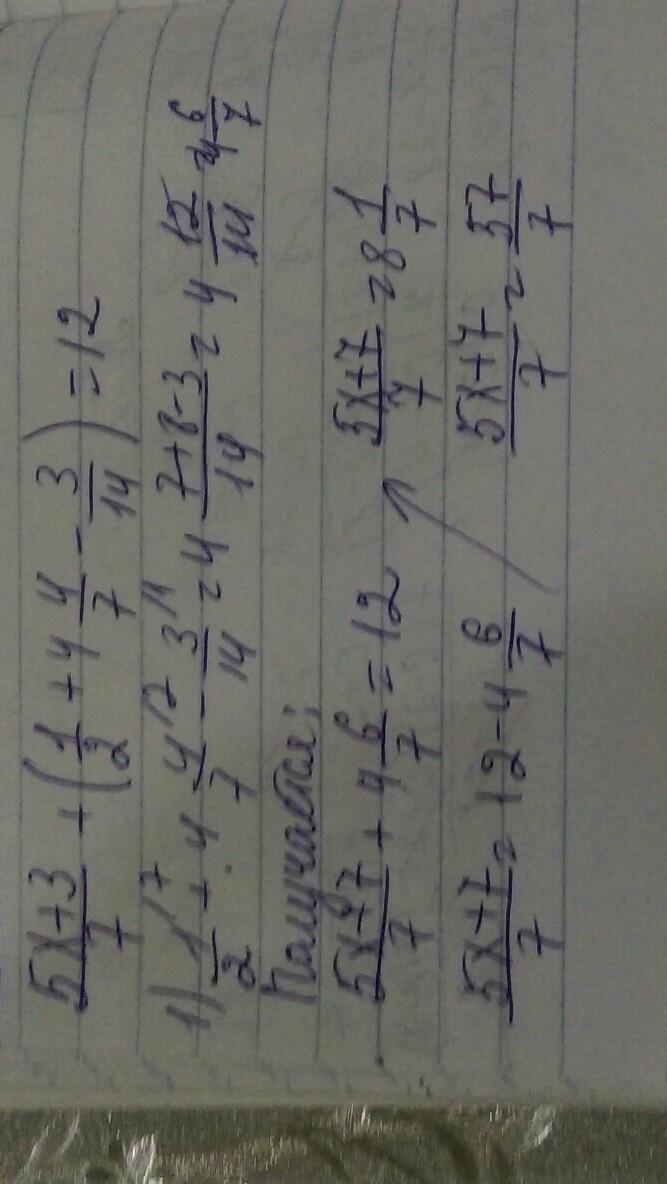 (5x+3)/7 + (1/2 + 4 4/7 - 3/14) = 12
1) 1/2 + 4 4/7 - 3/14 = 4 (7+8-3)/14 = 4 12/14 = 4 6/7
Получается:
(5x+7)/7 + 4 6/7 = 12
(5x+7)/7 = 8 1/7
(5x+7)/7 = 12 - 4 6/7
(5x+7)/7 = 57/7